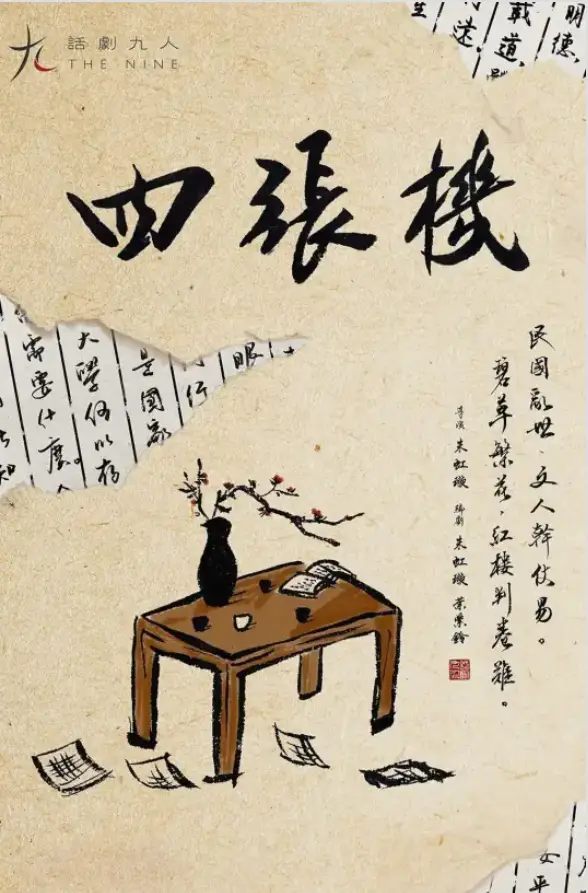 話劇九人
THE NINE
明德,
載道,
遠.
生
四張機
眼
行
是國家
大學何以存
需要什麼。人
知
民國亂世,文人幹仗易。
碧草繁花,紅樓判卷難。
導演 朱虹璇 編劇 朱虹璇 葉紫鈴